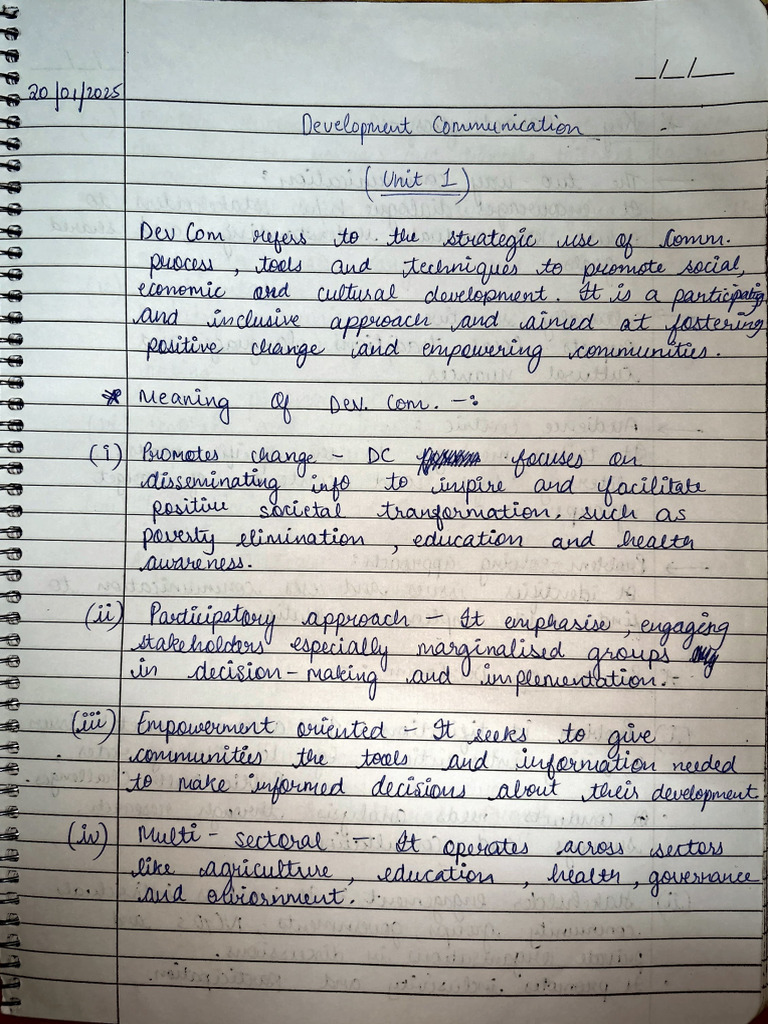 _/_/_
20/01/2025
Development Communication
(Unit 1)
Dev Com refers to the strategic use of Comm.
process, tools and techniques to promote social,
economic and cultural development. It is a participating
and inclusive approach and aimed at fostering
positive change and empowering communities.
* Meaning Of Dev. Com. -:
(i) Promotes change - DC focuses on
disseminating info to inpire and facilitate
positive societal transformation, such as
poverty elimination, education and health
awareness.
(ii) Participatory approach - It emphasise, engaging
stakeholders especially marginalised groups
in decision-making and implementation.
(iii) Empowerment oriented - It seeks to give
communities the tools and information needed
to make informed decisions about their development
(iv) Multi-sectoral - It operates across sectors
like agriculture, education, health, governance
and enviornment.